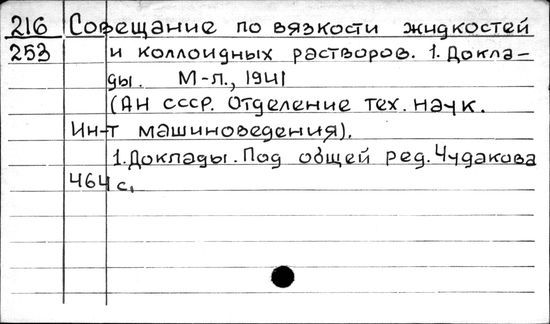 216 Совещание по вязкости жидкостей
253 и коллоидных растворов. 1. Докла-
ды. М-л., 1941
(АН СССР. Отделение тех. наук.
Ин-т машиноведения).
1. Доклады. Под общей ред. Чудакова
464 с.